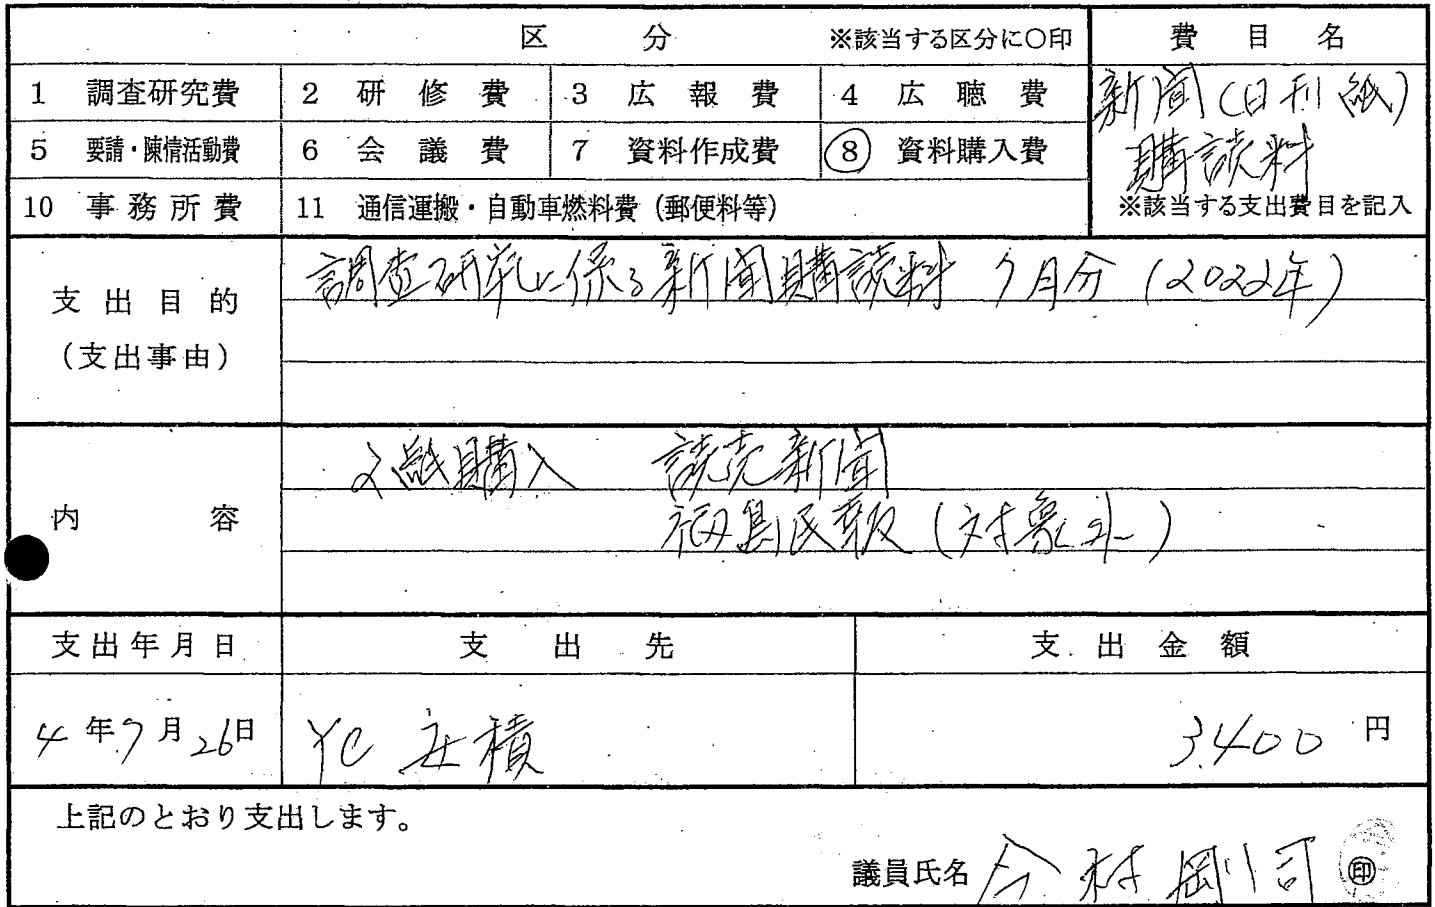 区 分 ※該当する区分に○印 費 目 名
1 調査研究費 2 研 修 費 3 広 報 費 4 広 聴 費
新聞(日刊紙)
5 要請・陳情活動費 6 会 議 費 7 資料作成費 8 資料購入費
購読料
10 事務所費 11 通信運搬・自動車燃料費(郵便料等)
※該当する支出費目を記入
支 出 目 的
(支出事由)
調査研究に係る新聞購読料 7月分 (2022年)
内 容
2紙購入 読売新聞
福島民報 (対象外)
支出年月日 支 出 先 支 出 金 額
4年7月26日 YC 安積 3,400 円
上記のとおり支出します。
議員氏名 今村剛司 ㊞